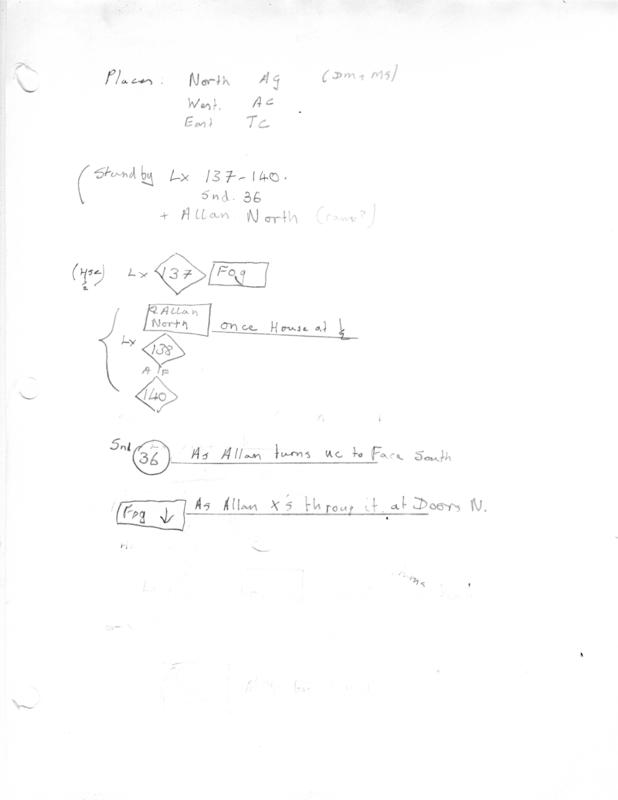 Places: North Ag (Dm + Ms)
West. Ac
East Tc
(Standby Lx 137-140.
Snd. 36
+ Allan North
(Hse Lx 137 Fog
Q Allan
North once House at ½
Lx 138
A/F
140
Snd 36 As Allan turns uc to Face South
Fog ↓ As Allan X's throug it at Doors N.